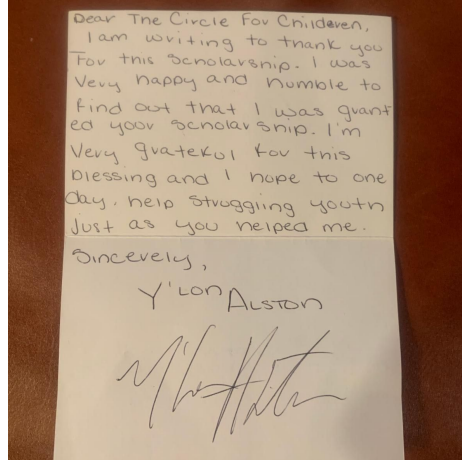 Dear The Circle For Children,
I am writing to thank you
For this scholarship. I was
very happy and humble to
find out that I was grant
ed your scholarship. I'm
very grateful for this
blessing and I hope to one
day, help struggling youth
Just as you helped me.
Sincerely,
Y'lon Alston
Y'lon Alston